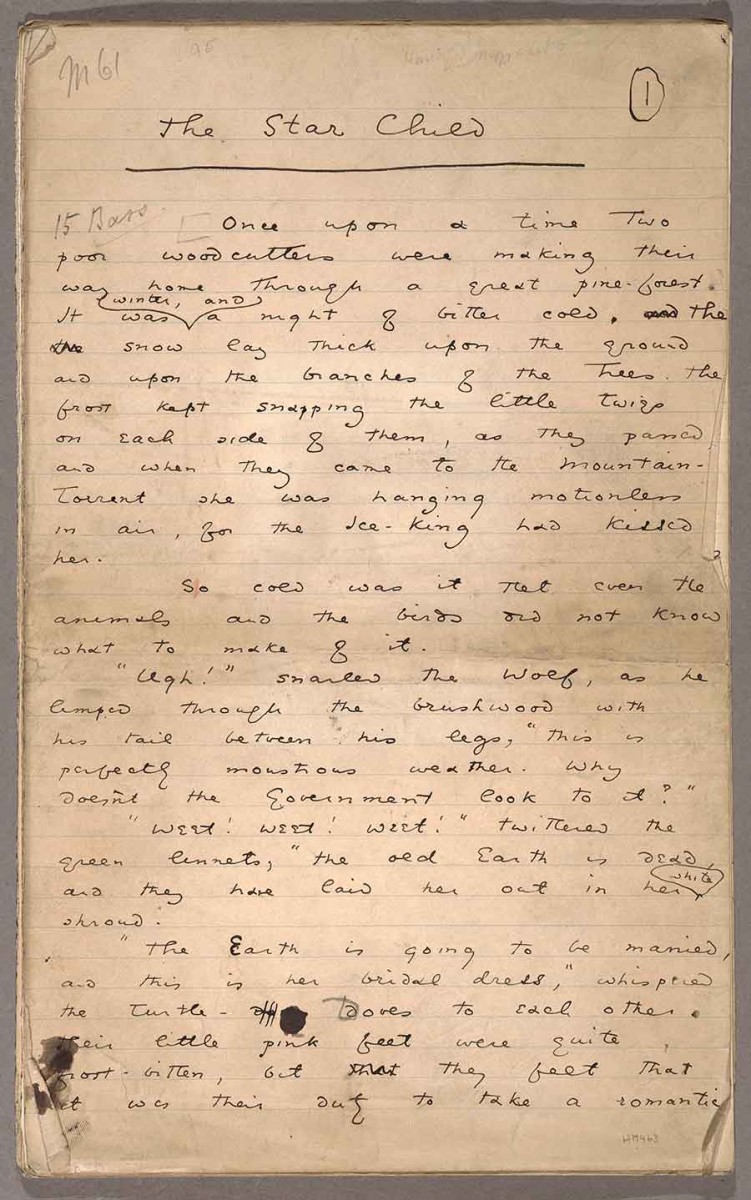 M61
1
The Star Child
15 Bars
Once upon a time Two
poor woodcutters were making their
way home through a great pine-forest.
winter, and
It was a night of bitter cold. and The
the snow lay thick upon the ground
and upon the branches of the trees. The
frost kept snapping the little twigs
on each side of them, as they passed
and when they came to the Mountain-
Torrent she was hanging motionless
in air, for the Ice-King had kissed
her.
So cold was it that even the
animals and the birds did not know
what to make of it.
"Ugh!" snarled the Wolf, as he
limped through the brushwood with
his tail between his legs, "this is
perfectly monstrous weather. Why
doesn't the Government look to it?"
"Weet! weet! weet!" twittered the
green linnets, "the old Earth is dead,
white
and they have laid her out in her
shroud.
"The Earth is going to be married,
and this is her bridal dress," whispered
the Turtle-Doves to each other.
Their little pink feet were quite
frost-bitten, but that they felt that
it was their duty to take a romantic
HM463